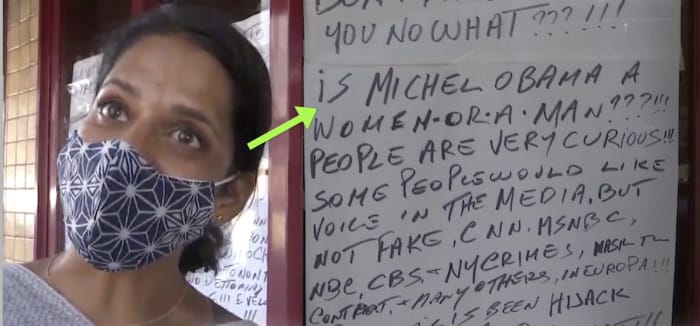 YOU NO WHAT???!!!
iS MICHEL OBAMA A
WOMEN-OR-A-MAN???!!!
PEOPLE ARE VERY CURIOUS!!!
SOME PEOPLE WOULD LIKE
VOICE IN THE MEDIA, BUT
NOT FAKE, CNN. MSNBC,
NBC, CBS, NYCRIMES,
MANY OTHERS, IN EUROPA!!!
IS BEEN HIJACK